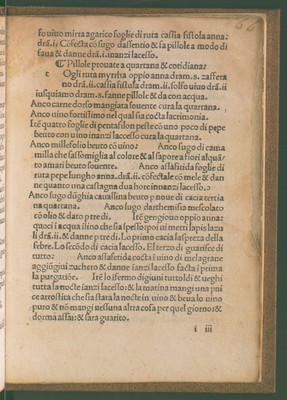 so uiuo mirra agarico foglie di ruta cassia fistola anna:
drã.ii. Cõfecta cõ sugo dassentio & fa pillole a modo di
faua & danne drã.i. inanzi lacesso.
¶ Pillole prouate a quartana & cotidiana:
t Ogli ruta myrrha oppio anna dram.s. zaffera
no drã.ii. cassia fistula dram.ii. solfo uiuo drã.ii
iusquiamo dram.s. fanne pillole & da con acqua.
Anco carne dorso mangiata souente cura la quartana.
Anco uino fortissimo nel qual sia cocta lacrimonia.
Itẽ quatro foglie di pentafilon peste cõ uno poco di pepe
beuto con uino inanzi laccesso cura la quartana.
Anco millefolio beuto cõ uino: Anco sugo di cama
milla che fassomiglia al colore & al sapore a fiori alquã/
to amari beuto souente. Anco assafitida foglie di
ruta pepe lungho anna.drã.ii. cõfectale cõ mele & dan
ne quanto una castagna dua hore inuanzi lacesso.
Anco sugo dũghia cauallina beuto preuoe di cacia terria
na quartana. Anco sugo darthemisia mescolato
cõ olio & dato p tre di. Itẽ gengiouo oppio anna:
quoci i acqua ilino che sia spesso: poi ui metti lapis lazu
li drã.ii. & danne p tre di. Lo primo cacia laspreza della
febre. Lo secõdo di cacia lacesso. El terzo di guarisce di
tutto: Anco assafetida cocta i uino di melagrane
aggiũgiui zuchero & danne ianzi lacesso facta i prima
la purgatiõe. Itẽ lo ifermo digiuni tuttoldi & ueghi
tutta la nocte ianzi lacesso: & la matina mangi una pni
ce arrostita che sia stara la nocte in uino & beua lo uino
puro & nõ mangi nessuna altra cosa per quel giorno: &
dorma assai: & sara guarito.
i iii